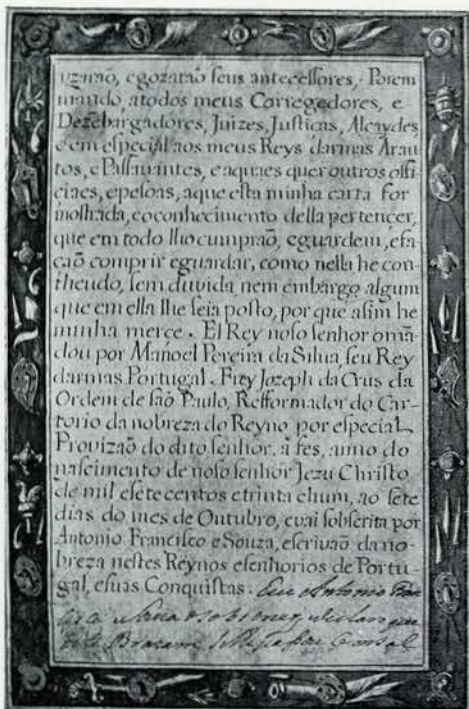 uzaraõ, egozaraõ seus antecessores, Porem
mando, atodos meus Corregedores, e
Dezẽbargadores, Juizes, Justicas, Alcaydes
e em especial aos meus Reys darmas Arau
tos, e Passavantes, eaquaes quer outros offi
ciaes, epesoas, aque esta minha carta for
mostrada, eoconhecimento della pertencer,
que em todo lho cumpraõ, eguardem, efa
caõ comprir eguardar, como nella he con
theudo, sem duvida, nem embargo algum
que em ella lhe seia posto, por que asim he
minha merce. El Rey noso senhor omã
dou por Manoel Pereira da Silua seu Rey
darmas Portugal. Frey Jozeph da Crus da
Ordem de saõ Paulo, Refformador do Car
torio da nobreza do Reyno por especial
Provizaõ do dito senhor, a fes, anno do
nascimento de noso senhor Jezu Christo
de mil esete centos etrinta ehum, ao sete
dias do mes de Outubro, evai sobscrita por
Antonio Francisco e Souza, escrivaõ da no
breza nestes Reynos esenhorios de Portu
gal, esuas Conquistas. Eu Antonio Fran